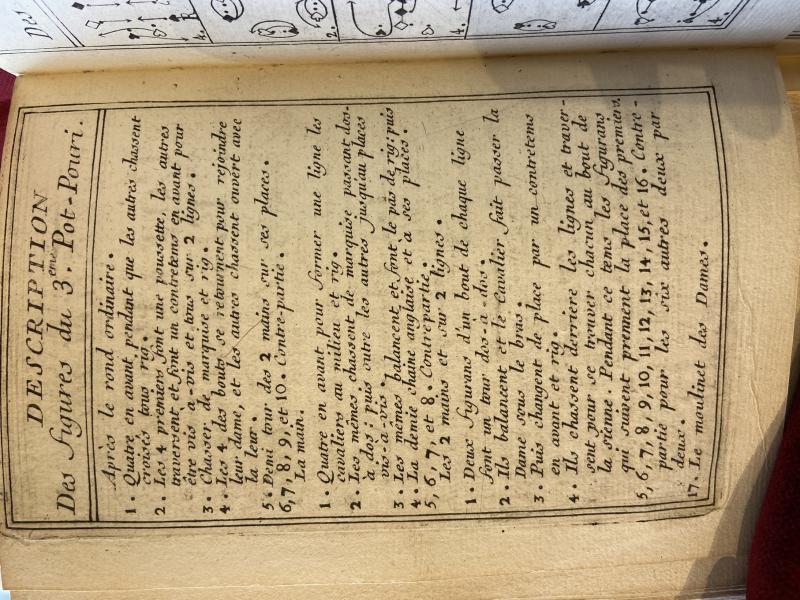 DESCRIPTION
Des figures du 3.eme Pot-Pouri.
Après le rond ordinaire.
1. Quatre en avant pendant que les autres chassent
croisés tous rig.
2. Les 4 premiers font une poussette, les autres
traversent et font un contretems en avant pour
être vis a-vis et tous sur 2 lignes.
3. Chasser de marquise et rig.
4. Les 4 des bouts se retournent pour rejoindre
leur dame, et les autres chassent ouvert avec
la leur.
5. Demi tour des 2 mains sur ses places.
6, 7, 8, 9, et 10. Contre-partie.
La main.
1. Quatre en avant pour former une ligne les
cavaliers au milieu et rig.
2. Les mêmes chassent de marquise passant dos-
à dos; puis outre les autres jusqu'au places
vis-à-vis.
3. Les mêmes balancent et font le pas de rig; puis
4. La demie chaine anglaise et a ses places.
5, 6, 7, et 8. Contrepartie.
Les 2 mains et sur 2 lignes.
1. Deux figurans d'un bout de chaque ligne
font un tour dos-a-dos.
2. Ils balancent et le Cavalier fait passer la
Dame sous le bras.
3. Puis changent de place par un contretems
en avant et rig.
4. Ils chassent derrière les lignes et traver-
sent pour se trouver chacun au bout de
la sienne. Pendant ce tems les figurans
qui suivent prennent la place des premiers.
5, 6, 7, 8, 9, 10, 11, 12, 13, 14, 15, et 16. Contre-
partie pour les six autres deux par
deux.
17. Le moulinet des Dames.
Des
4.
2.
4.